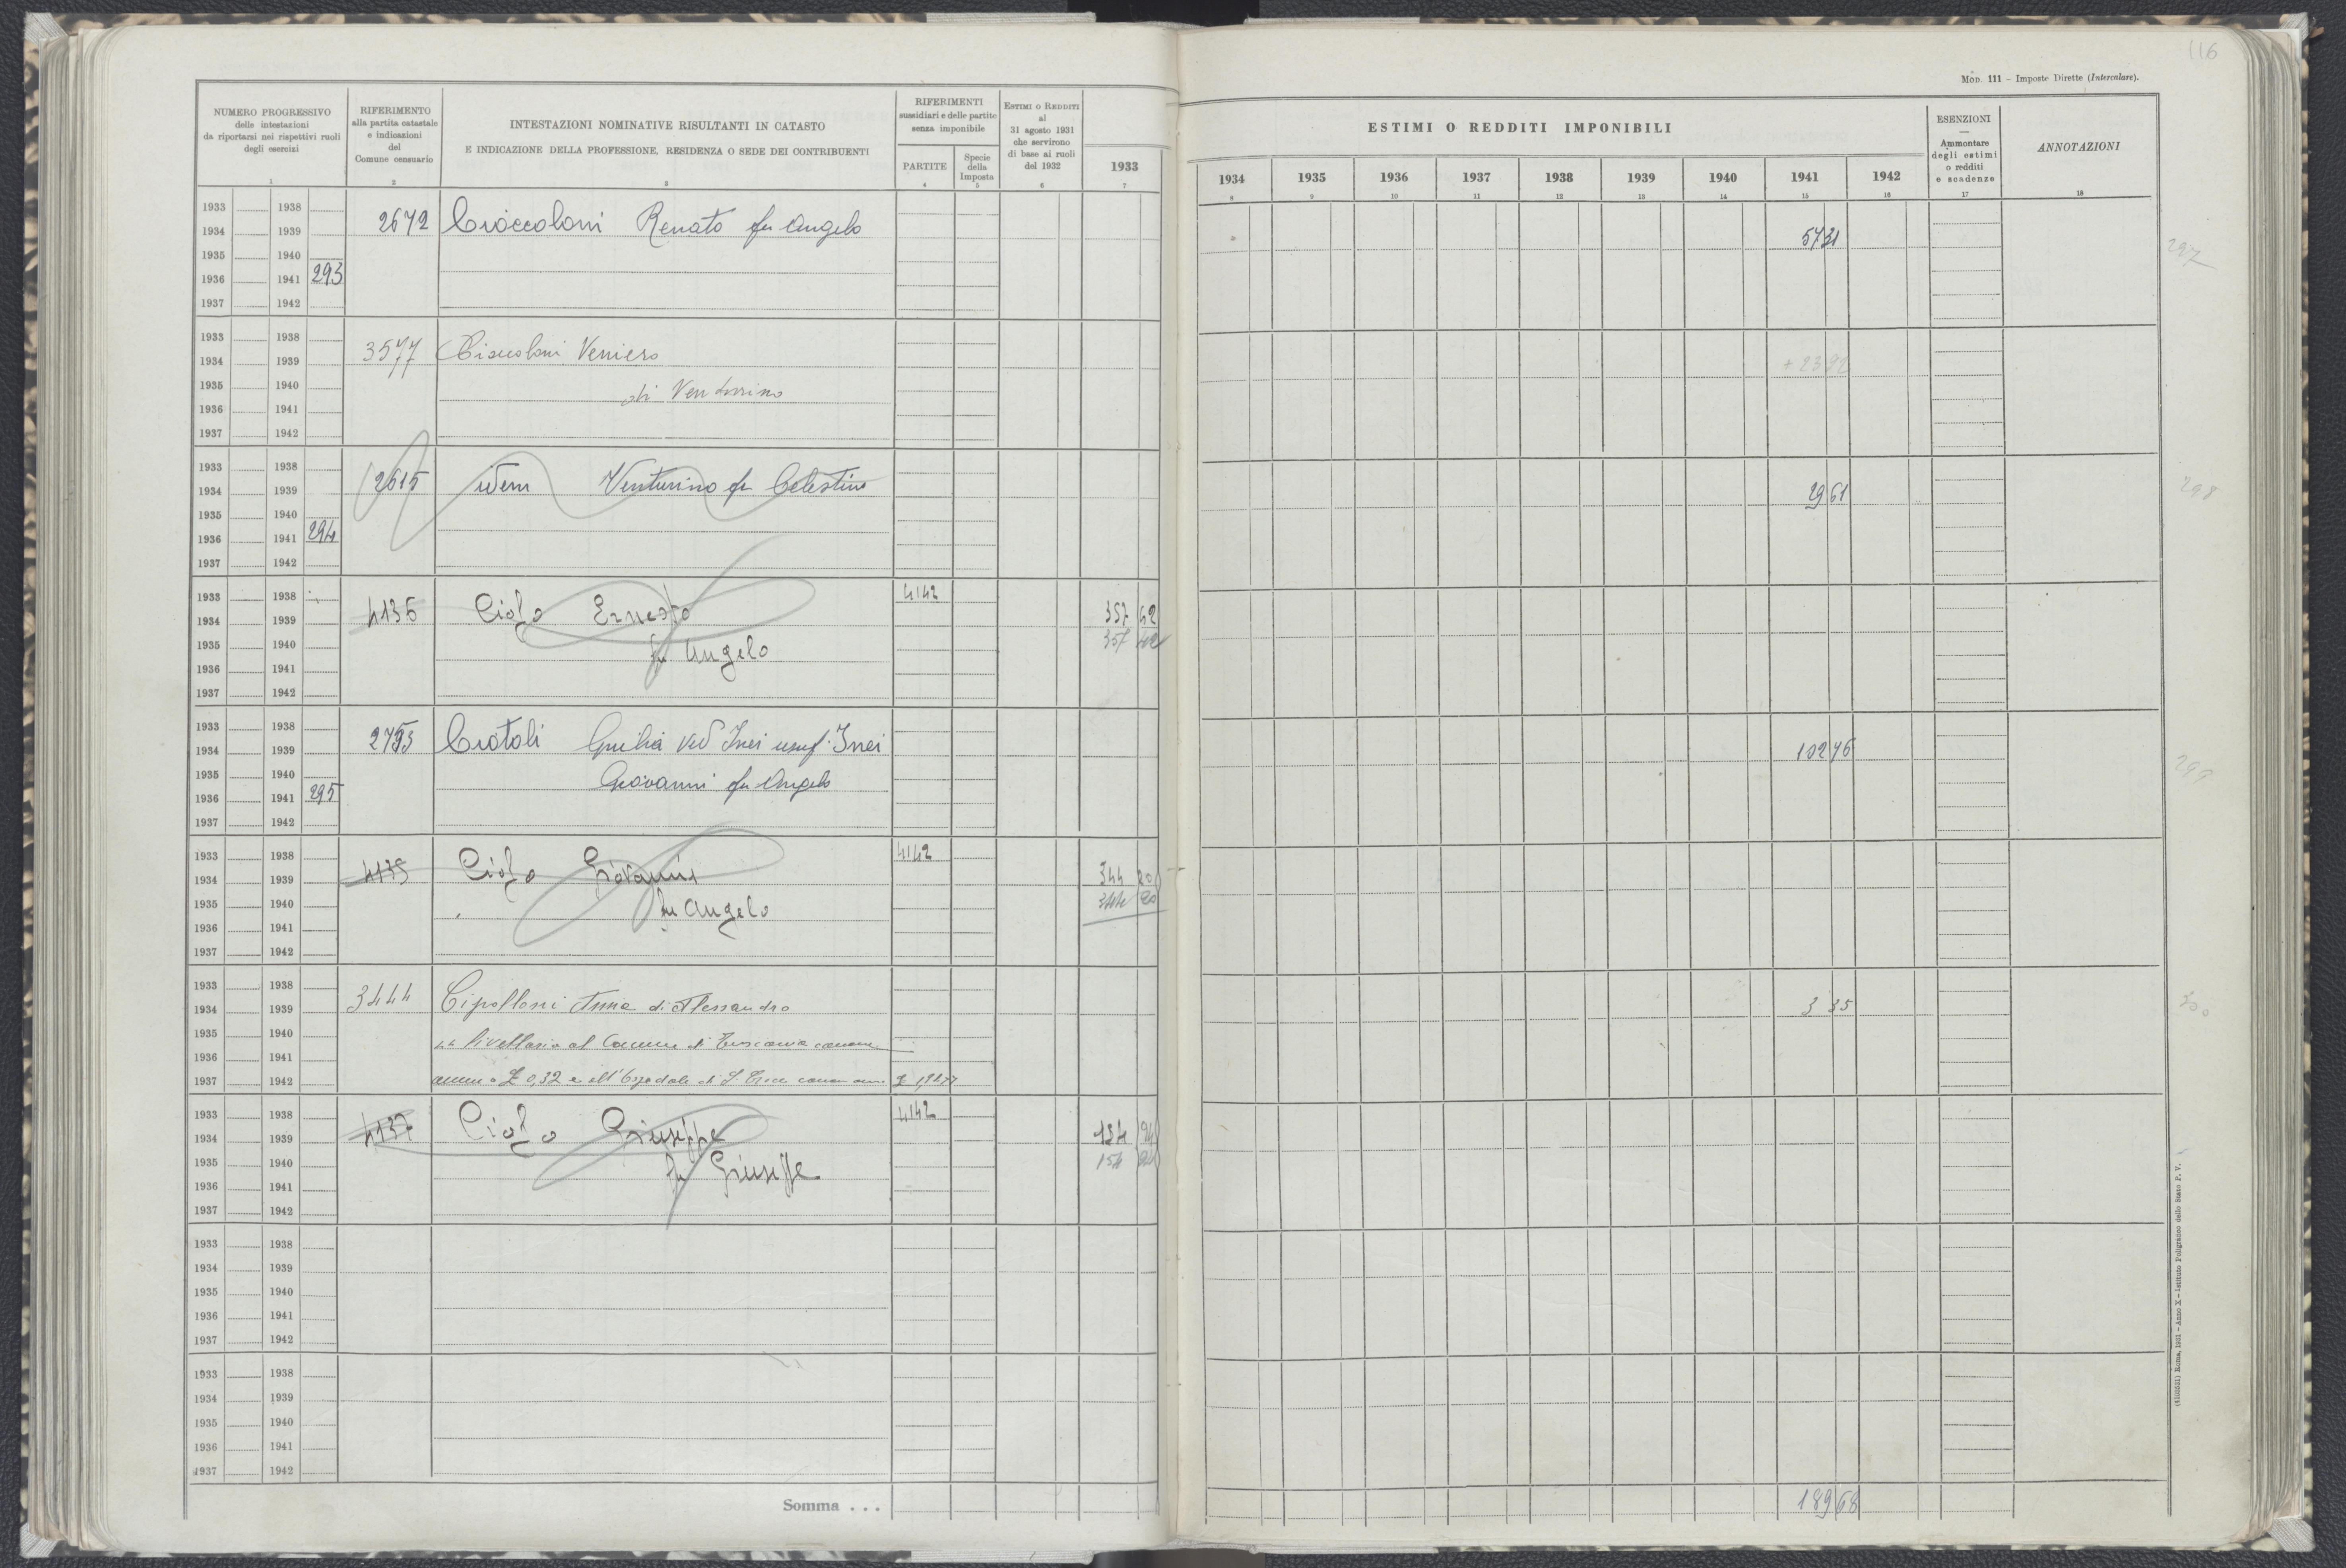 116
Mod. 111 – Imposte Dirette (Intercalare).
NUMERO PROGRESSIVO
delle intestazioni
da riportarsi nei rispettivi ruoli
degli esercizi
1
RIFERIMENTO
alla partita catastale
e indicazioni
del
Comune censuario
2
INTESTAZIONI NOMINATIVE RISULTANTI IN CATASTO
E INDICAZIONE DELLA PROFESSIONE, RESIDENZA O SEDE DEI CONTRIBUENTI
3
RIFERIMENTI
sussidiari e delle partite
senza imponibile
PARTITE
4
Specie
della
Imposta
5
Estimi o Redditi
al
31 agosto 1931
che servirono
di base ai ruoli
del 1932
6
1933
7
ESTIMI O REDDITI IMPONIBILI
1934 1935 1936 1937 1938 1939 1940 1941 1942
8 9 10 11 12 13 14 15 16
ESENZIONI
—
Ammontare
degli estimi
o redditi
e scadenze
17
ANNOTAZIONI
18
1933 1938
1934 1939 2672 Cioccoloni Renato fu Angelo 57 31
1935 1940 297
1936 1941 293
1937 1942
1933 1938
1934 1939 3577 Veniero + 23 92
1935 1940 di Venturino
1936 1941
1937 1942
1933 1938
1934 1939 2615 idem Venturino fu Celestino 29 61 298
1935 1940
1936 1941 294
1937 1942
1933 1938 4142
1934 1939 4135 Ciofo Ernesto 357 42
1935 1940 fu Angelo 357 42
1936 1941
1937 1942
1933 1938
1934 1939 Giulia Ved Inei usuf. Inei 102 76
1935 1940 Giovanni fu Angelo
1936 1941 295
1937 1942
1933 1938 4142
1934 1939 Ciofo Giovanni 344 20
1935 1940 fu Angelo 344 20
1936 1941
1937 1942
1933 1938
1934 1939 3444 Cipolloni Anna di Alessandro 3 35 300
1935 1940
1936 1941 livellaria al Comune di Tuscania canone
1937 1942 annuo £ 0,32 e all'Ospedale di S. Croce canone
1933 1938 4142
1934 1939 4137 Ciofo Giuseppe 94
1935 1940 fu Giuseppe 154 94
1936 1941
1937 1942
1933 1938
1934 1939
1935 1940
1936 1941
1937 1942
1933 1938
1934 1939
1935 1940
1936 1941
1937 1942
Somma . . . 189 68
(4102831) Roma, 1931 - Anno X - Istituto Poligrafico dello Stato P. V.